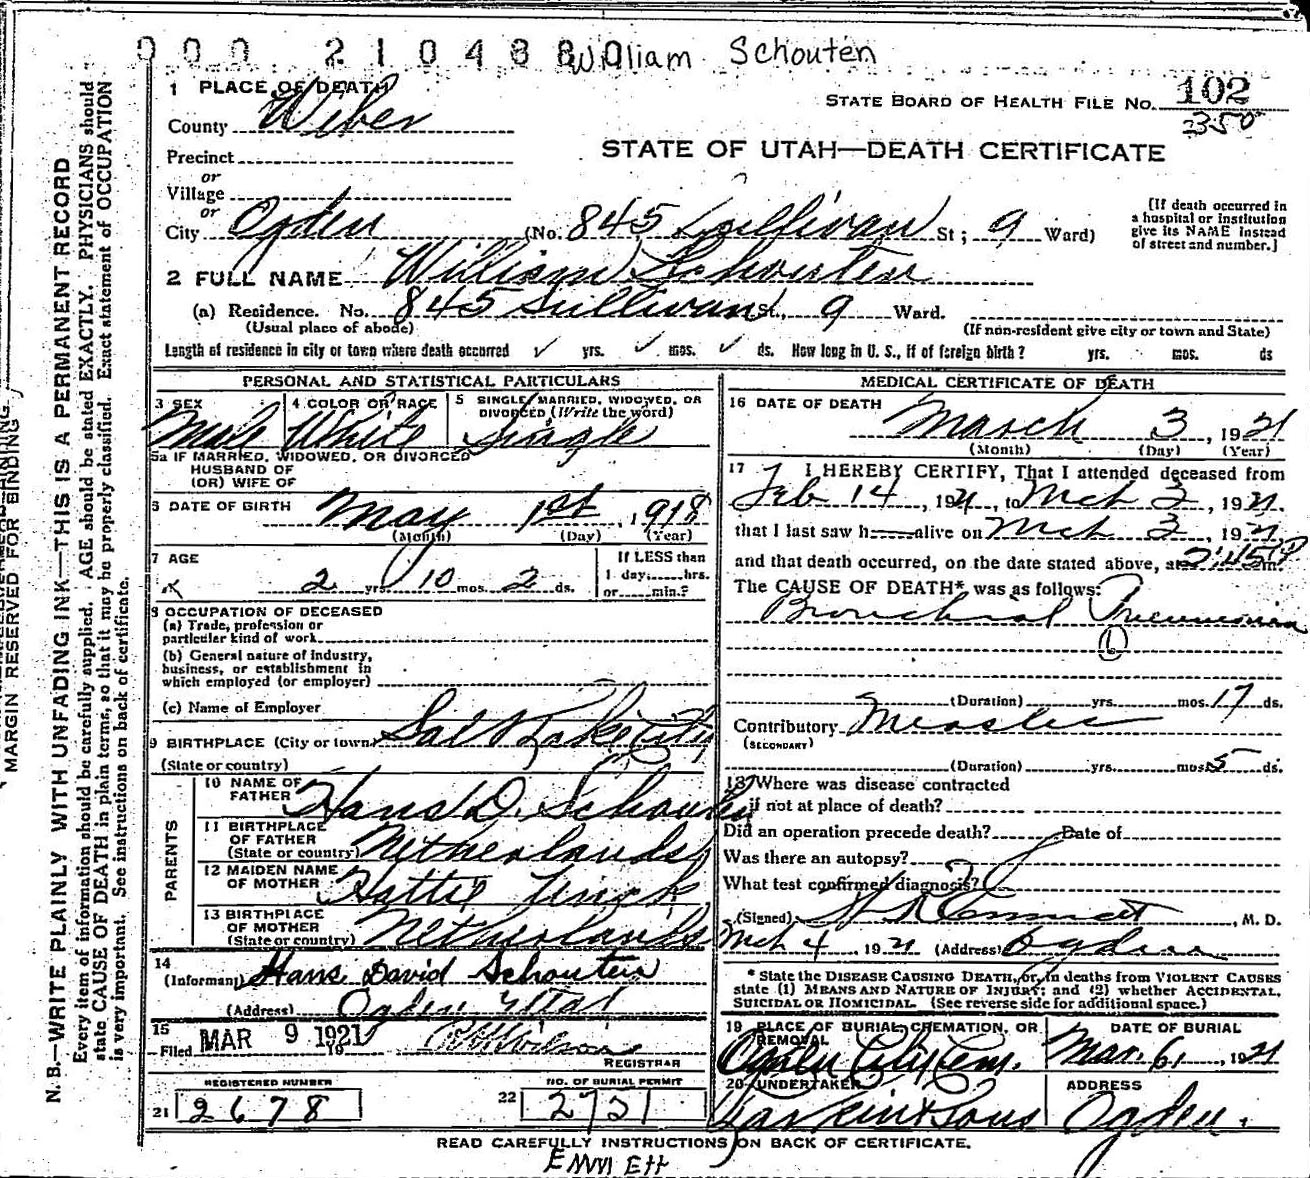 000 210488 William Schouten
1 PLACE OF DEATH
STATE BOARD OF HEALTH FILE NO. 102
350
County Weber
STATE OF UTAH—DEATH CERTIFICATE
Precinct
or
Village
or
City Ogden (No. 845 Sullivan St; 9 Ward)
[If death occurred in
a hospital or institution
give its NAME instead
of street and number.]
2 FULL NAME William Schouten
(a) Residence. No. 845 Sullivan St., 9 Ward.
(Usual place of abode)
(If non-resident give city or town and State)
Length of residence in city or town where death occurred ✓ yrs. ✓ mos. ✓ ds. How long in U. S., if of foreign birth? yrs. mos. ds
PERSONAL AND STATISTICAL PARTICULARS
3 SEX
Male
4 COLOR OR RACE
White
5 SINGLE, MARRIED, WIDOWED, OR
DIVORCED (Write the word)
Single
5a IF MARRIED, WIDOWED, OR DIVORCED
HUSBAND OF
(OR) WIFE OF
6 DATE OF BIRTH May 1st, 1918
(Month) (Day) (Year)
7 AGE
2 yrs. 10 mos. 2 ds.
If LESS than
1 day......hrs.
or......min.?
8 OCCUPATION OF DECEASED
(a) Trade, profession or
particular kind of work
(b) General nature of industry,
business, or establishment in
which employed (or employer)
(c) Name of Employer
9 BIRTHPLACE (City or town) Salt Lake City
(State or country)
PARENTS
10 NAME OF
FATHER Hans D. Schouten
11 BIRTHPLACE
OF FATHER
(State or country) Netherlands
12 MAIDEN NAME
OF MOTHER Hattie
13 BIRTHPLACE
OF MOTHER
(State or country) Netherlands
14
(Informant) Hans David Schouten
(Address) Ogden Utah
15
Filed MAR 9 1921 19 R H Wilson
REGISTRAR
REGISTERED NUMBER
21 2678
NO. OF BURIAL PERMIT
22 2721
MEDICAL CERTIFICATE OF DEATH
16 DATE OF DEATH
March 3, 1921
(Month) (Day) (Year)
17 I HEREBY CERTIFY, That I attended deceased from
Feb 14, 1921, to Mch 3, 1921.
that I last saw h——alive on Mch 3, 1921,
and that death occurred, on the date stated above, at 2:45 P m.
The CAUSE OF DEATH* was as follows:
Bronchial Pneumonia
(Duration) yrs. mos. 17 ds.
Contributory Measles
(SECONDARY)
(Duration) yrs. mos. 5 ds.
18 Where was disease contracted
if not at place of death?
Did an operation precede death? Date of
Was there an autopsy?
What test confirmed diagnosis?
(Signed) Emmett, M. D.
Mch 4, 1921 (Address) Ogden
* State the DISEASE CAUSING DEATH, or, in deaths from VIOLENT CAUSES
state (1) MEANS AND NATURE OF INJURY; and (2) whether ACCIDENTAL,
SUICIDAL OR HOMICIDAL. (See reverse side for additional space.)
19 PLACE OF BURIAL, CREMATION, OR
REMOVAL
Ogden City Cem.
DATE OF BURIAL
Mar. 6, 1921
20 UNDERTAKER
Larkin & Sons
ADDRESS
Ogden.
READ CAREFULLY INSTRUCTIONS ON BACK OF CERTIFICATE.
EMMETT
MARGIN RESERVED FOR BINDING
N. B.—WRITE PLAINLY WITH UNFADING INK—THIS IS A PERMANENT RECORD
Every item of information should be carefully supplied. AGE should be stated EXACTLY. PHYSICIANS should
state CAUSE OF DEATH in plain terms, so that it may be properly classified. Exact statement of OCCUPATION
is very important. See instructions on back of certificate.